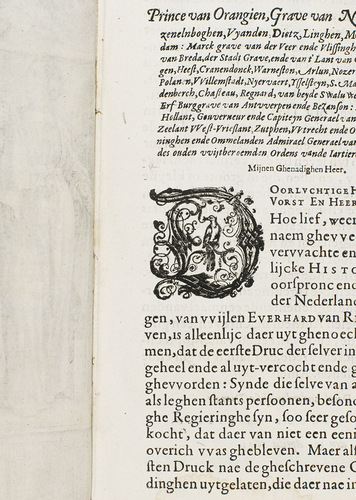 Prince van Orangien, Grave van N
zenelnboghen, Vyanden, Dietz, Linghen, M
dam: Marck grave van der Veer ende Vlissingh
van Breda, der Stadt Grave, ende van t' Lant van C
gen, Heest, Cranendonck, Warneston, Arlun, Nozer
Polanen, VVillemstadt, Nyervaert, Ysselsteyn, S. Ma
denberch, Chasteau, Regnard, van beyde Swalu we
Erf Burggrave van Antvverpen ende Bezanson:
Hollant, Gouverneur ende Capiteyn Generael van
Zeelant VVest-Vrieslant, Zutphen, VVtrecht ende O
ninghen ende Ommelanden Admirael Generael van
des ouden vvijtberoemden Ordens vande Iartier
Mijnen Ghenadighen Heer.
DOORLVCHTIGE H
VORST EN HEER
Hoe lief, weer
naem ghevve
vervvachte en
lijcke HISTO
oorspronc end
der Nederland
gen, van vvijlen EVERHARD van R
ven, is alleenlijc daer uyt ghenoech
men, dat de eerste Druc der selver in
geheel ende al uyt-vercocht ende g
ghevvorden: Synde die selve van a
als leghen stants persoonen, beson
ghe Regieringhe syn, soo seer geso
kocht, dat daer van niet een eeni
overich vvas ghebleven. Maer als
sten Druck nae de gheschrevene C
dinghen uytgelaten, die daer nae in